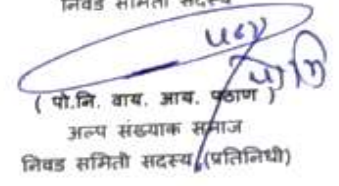 निवड समिती सदस्य
( पो.नि. वाय. आय. पठाण )
अल्प संख्याक समाज
निवड समिती सदस्य (प्रतिनिधी)